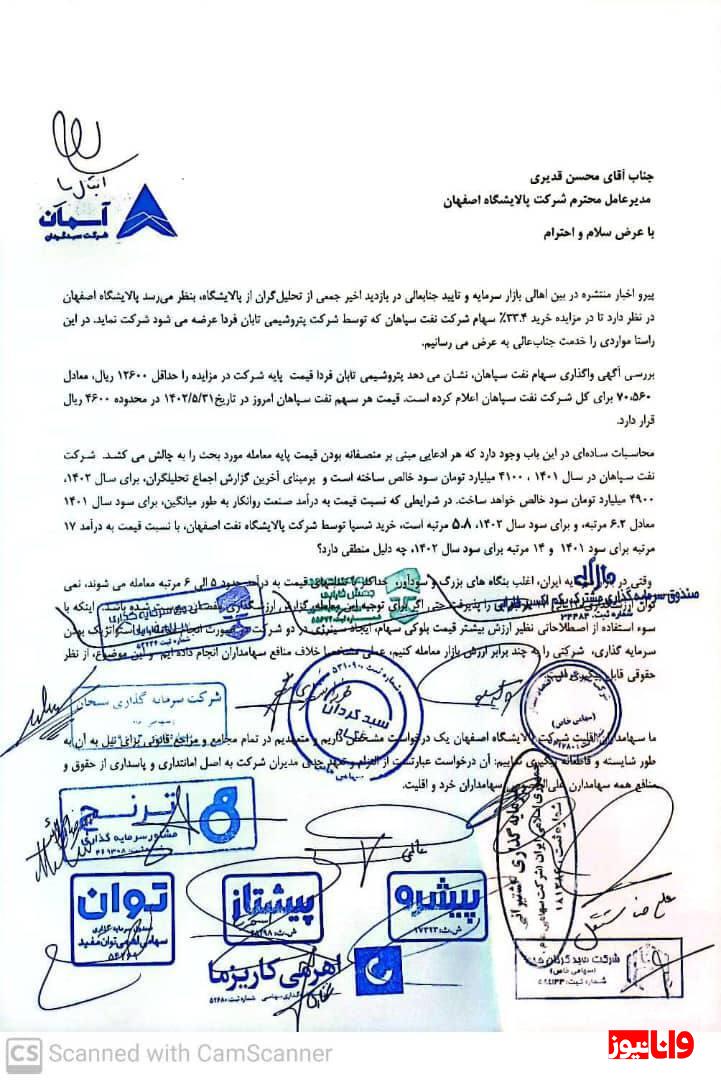 آسمان
شرکت سبدگردان
جناب آقای محسن قدیری
مدیرعامل محترم شرکت پالایشگاه اصفهان
با عرض سلام و احترام
پیرو اخبار منتشره در بین اهالی بازار سرمایه و تایید جنابعالی در بازدید اخیر جمعی از تحلیل‌گران از پالایشگاه، بنظر می‌رسد پالایشگاه اصفهان
در نظر دارد تا در مزایده خرید ۳۳.۴٪ سهام شرکت نفت سپاهان که توسط شرکت پتروشیمی تابان فردا عرضه می شود شرکت نماید. در این
راستا مواردی را خدمت جناب‌عالی به عرض می رسانیم.
بررسی آگهی واگذاری سهام نفت سپاهان، نشان می دهد پتروشیمی تابان فردا قیمت پایه شرکت در مزایده را حداقل ۱۲۶۰۰ ریال، معادل
۷۰،۵۶۰ برای کل شرکت نفت سپاهان اعلام کرده است. قیمت هر سهم نفت سپاهان امروز در تاریخ ۱۴۰۲/۵/۳۱ در محدوده ۴۶۰۰ ریال
قرار دارد.
محاسبات ساده‌ای در این باب وجود دارد که هر ادعایی مبنی بر منصفانه بودن قیمت پایه معامله مورد بحث را به چالش می کشد. شرکت
نفت سپاهان در سال ۱۴۰۱ ، ۴۱۰۰ میلیارد تومان سود خالص ساخته است و برمبنای آخرین گزارش اجماع تحلیلگران، برای سال ۱۴۰۲،
۴۹۰۰ میلیارد تومان سود خالص خواهد ساخت. در شرایطی که نسبت قیمت به درآمد صنعت روانکار به طور میانگین، برای سود سال ۱۴۰۱
معادل ۶.۲ مرتبه، و برای سود سال ۱۴۰۲، ۵.۸ مرتبه است، خرید شسپا توسط شرکت پالایشگاه نفت اصفهان، با نسبت قیمت به درآمد ۱۷
مرتبه برای سود ۱۴۰۱ و ۱۴ مرتبه برای سود سال ۱۴۰۲، چه دلیل منطقی دارد؟
وقتی در بازار سرمایه ایران، اغلب بنگاه های بزرگ و سودآور حداکثر با نسبتهای قیمت به درآمد حدود ۵ الی ۶ مرتبه معامله می شوند، نمی
توان را پذیرفت حتی اگر برای توجیه این معامله گزارش ارزشگذاری باشد. اینکه با
سوء استفاده از اصطلاحاتی نظیر ارزش بیشتر قیمت بلوکی سهام، ایجاد سینرژی در دو شرکت در صورت انجام معامله، یا استراتژیک بودن
سرمایه گذاری، شرکتی را به چند برابر ارزش بازار معامله کنیم، عملی مشخصا خلاف منافع سهامداران انجام داده ایم و این موضوع، از نظر
حقوقی قابل پیگیری است.
ما سهامداران اقلیت شرکت پالایشگاه اصفهان یک درخواست مشخص داریم و متعهدیم در تمام مجامع و مراجع قانونی برای نیل به آن به
طور شایسته و قاطعانه پیگیری نماییم: آن درخواست عبارتست از التزام و تعهد جدی مدیران شرکت به اصل امانتداری و پاسداری از حقوق و
منافع همه سهامدارن علی‌الخصوص سهامداران خرد و اقلیت.
صندوق سرمایه گذاری مشترک یکم اکسیر فارابی
شماره ثبت: ۲۴۴۸۳
شرکت سرمایه گذاری سبحان
سبدگردان
(سهامی خاص)
ترنج
مشاور سرمایه گذاری
توان
سهامی اهرمی توان مفید
پیشتاز
پیشرو
ش.ث: ۱۷۳۲۳
اهرمی کاریزما
شرکت سبدگردان
(سهامی خاص)
CS Scanned with CamScanner
وانانیوز